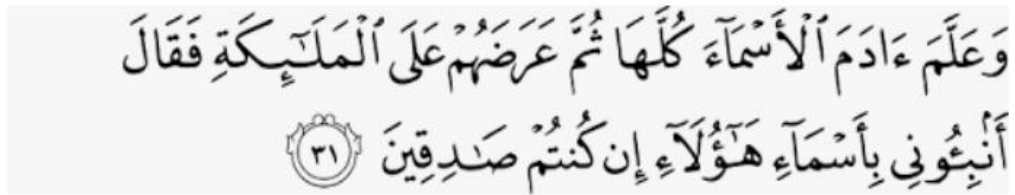 وَعَلَّمَ ءَادَمَ ٱلْأَسْمَآءَ كُلَّهَا ثُمَّ عَرَضَهُمْ عَلَى ٱلْمَلَٰٓئِكَةِ فَقَالَ
أَنۢبِـُٔونِى بِأَسْمَآءِ هَٰٓؤُلَآءِ إِن كُنتُمْ صَٰدِقِينَ ٣١